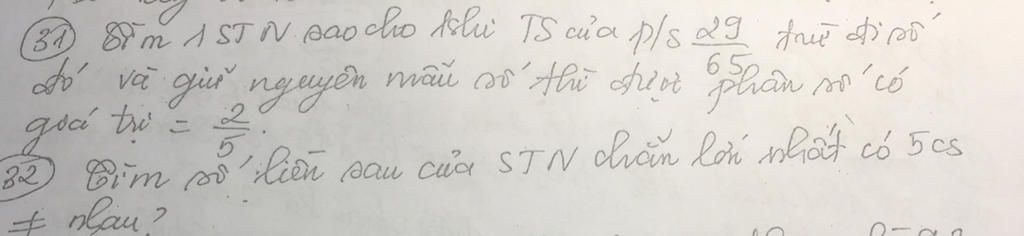 31 Tìm 1 STN sao cho khi TS của p/s 29/65 trừ đi số
đó và giữ nguyên mẫu số thì được phân số có
giá trị = 2/5.
32 Tìm số liền sau của STN chẵn lớn nhất có 5 cs
≠ nhau?